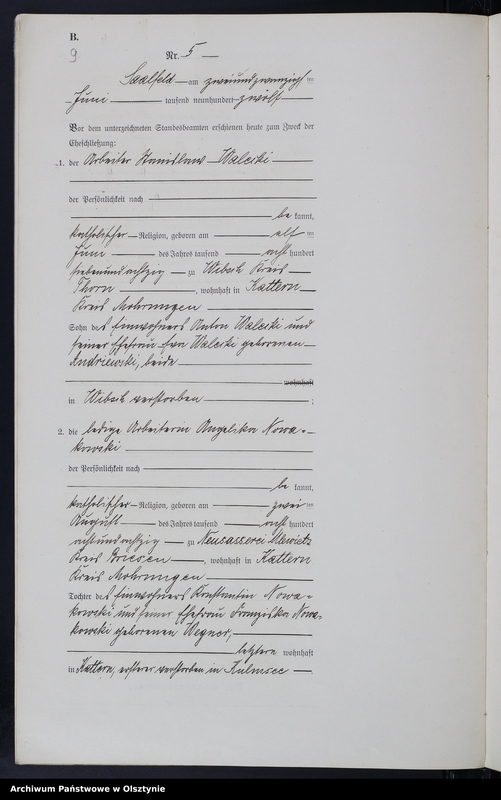 B.
9
Nr. 5
Saalfeld am zweiundzwanzigsten
Juni tausend neunhundert zwölf
Vor dem unterzeichneten Standesbeamten erschienen heute zum Zweck der
Eheschließung:
1. der Arbeiter Stanislaus Waleski
der Persönlichkeit nach
be kannt,
katholischer Religion, geboren am elften
Juni des Jahres tausend acht hundert
siebenundachtzig zu Wibsch Kreis
Thorn, wohnhaft in Kattern
Kreis Mohrungen
Sohn des Einwohners Anton Waleski und
seiner Ehefrau Eva Waleski geborenen
Andrzewski, beide
wohnhaft
in Wibsch verstorben ;
2. die ledige Arbeiterin Angelika Nowa-
kowski
der Persönlichkeit nach
be kannt,
katholischer Religion, geboren am zweiten
August des Jahres tausend acht hundert
achtundachtzig zu Neusasserei
Kreis Briesen, wohnhaft in Kattern
Kreis Mohrungen
Tochter des Einwohners Konstantin Nowa-
kowski und seiner Ehefrau Franziska Nowa-
kowski geborenen Wegner,
letztere wohnhaft
in Kattern, ersterer verstorben in Kulmsee
Archiwum Państwowe w Olsztynie